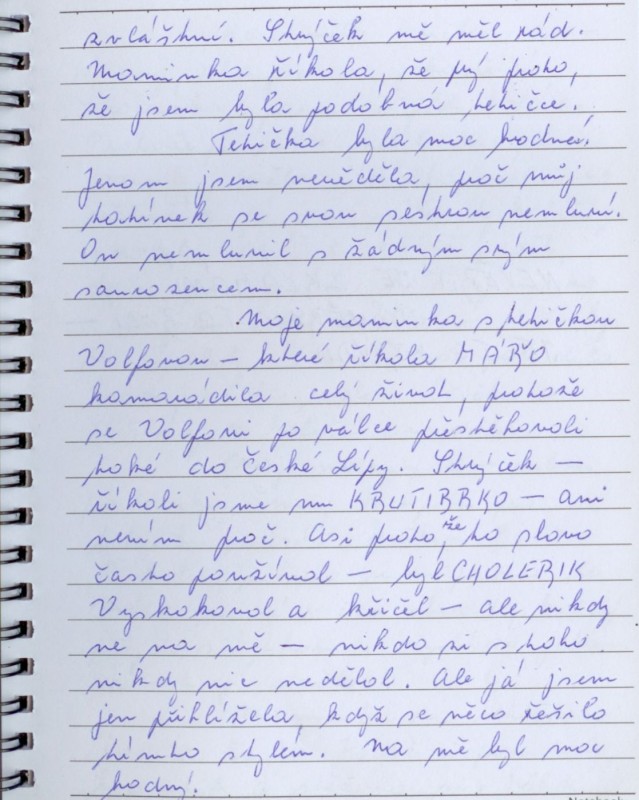 zvláštní. Strýček mě měl rád.
Maminka říkala, že prý proto,
že jsem byla podobná tetičce.
Tetička byla moc hodná.
Jenom jsem nevěděla, proč můj
tatínek se svou sestrou nemluví.
On nemluvil s žádným svým
sourozencem.
Moje maminka s tetičkou
Volfovou – které říkala MÁŘO
kamarádila celý život, protože
se Volfovi po válce přestěhovali
také do České Lípy. Strýček –
říkali jsme mu KRUTIBRKO – ani
nevím proč. Asi proto, že to slovo
často používal – byl CHOLERIK
Vyskakoval a křičel – ale nikdy
ne na mě – nikdo si z toho
nikdy nic nedělal. Ale já jsem
jen přihlížela, když se něco řešilo
tímto stylem. Na mě byl moc
hodný.